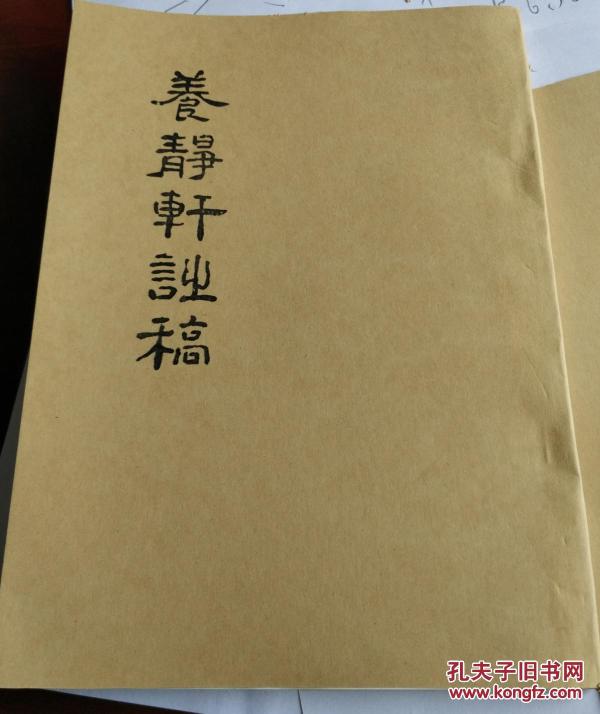 養靜軒詩稿
孔夫子旧书网
www.kongfz.com